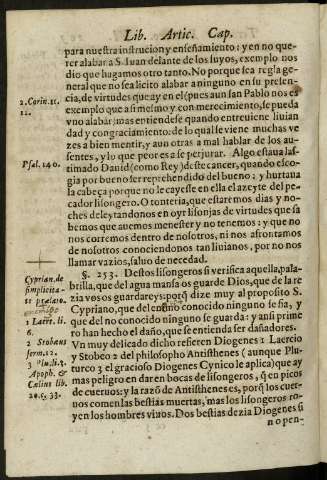 Lib. Artic. Cap.
para nuestra instrucion y enseñamiento: y en no que-
rer alabar a S. Iuan delante de los suyos, exemplo nos
dio que hagamos otro tanto. No porque sea regla ge-
neral que no sea licito alabar a ninguno en su presen-
cia, de virtudes que ay en el (pues aun san Pablo nos es
exemplo que a si mesmo y con merecimiento, se pueda
vno alabar; mas entiendese quando entreuiene liuian
dad y congraciamiento: de lo qual se viene muchas ve
zes a bien mentir, y aun otras a mal hablar de los au-
sentes, y lo que peor es a se perjurar. Algo estaua las-
timado Dauid (como Rey) deste cancer, quando esco-
gia por bueno ser reprehendido del bueno: y hurtaua
la cabeça porque no le cayesse en ella el azeyte del pe-
cador lisongero. O tonteria, que estaremos dias y no-
ches deleytandonos en oyr lisonjas de virtudes que sa
bemos que auemos menester y no tenemos: y que no
nos corremos dentro de nosotros, ni nos afrontamos
de nosotros conociendonos tan liuianos, por no nos
llamar vazios, saluo de necedad.
§. 253. Destos lisongeros si verifica aquella, pala-
brilla, que del agua mansa os guarde Dios, que de la re
zia vos os guardareys: porq̃ dize muy al proposito S.
Cypriano, que del enemigo conocido ninguno se fia, y
que del no conocido ninguno se guarda: y ansi prime
ro han hecho el daño, que se entienda ser dañadores.
Vn muy delicado dicho refieren Diogenes 1 Laercio
y Stobeo 2 del philosopho Antisthenes (aunque Plu-
turco 3 el gracioso Diogenes Cynico le aplica) que ay
mas peligro en dar en bocas de lisongeros, q̃ en picos
de cueruos: y la razõ de Antisthenes es, porq̃ los cuer-
uos comen las bestias muertas, mas los lisongeros ro-
yen los hombres viuos. Dos bestias dezia Diogenes si
no pen-
2. Corin. 11.
12.
Psal. 140.
Cyprian. de
simplicita-
te prelato.
1 Laert. li.
6.
2 Stobæus
serm. 12.
3 Plu. li. 3.
Apoph. &
Cælius lib.
20. c. 33.